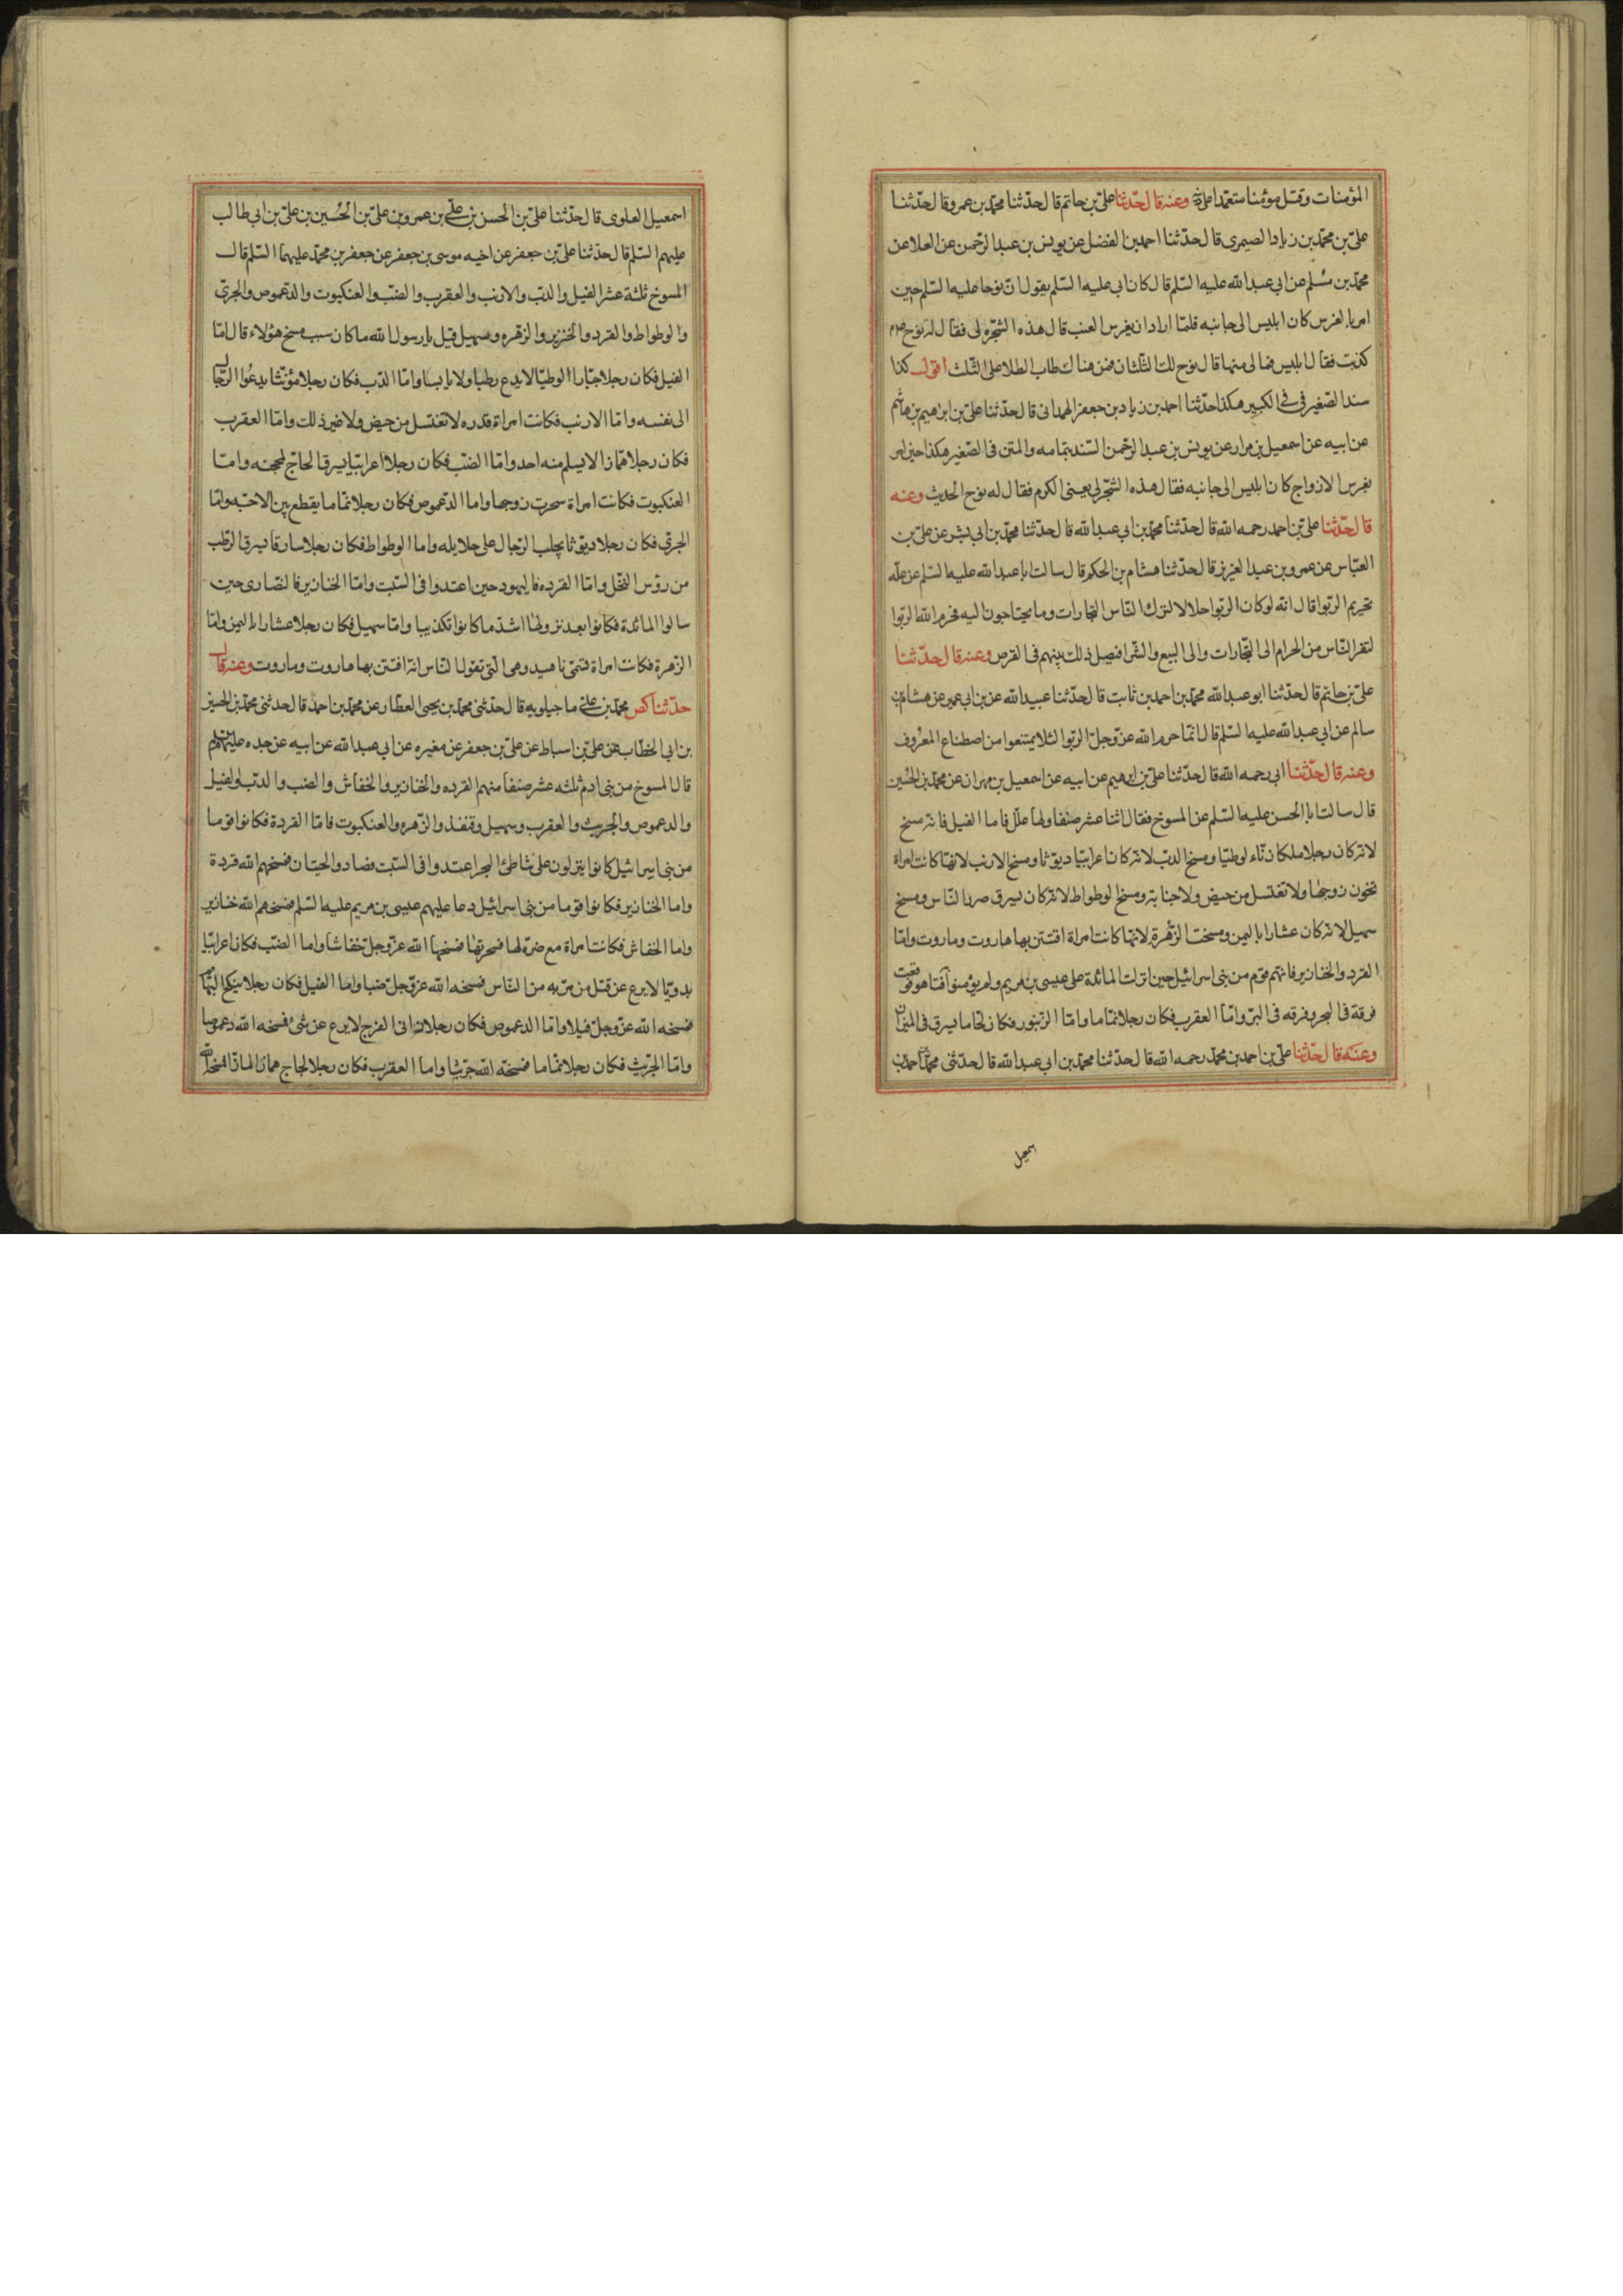 المؤمنات وقتل مؤمنا متعمدا على وعنه قال حدّثنا علىّ بن حاتم قال حدّثنا محمّد بن عمرو قال حدّثنا
علىّ بن محمّد بن زياد الصيمرى قال حدّثنا احمد بن الفضل عن يونس بن عبد الرّحمن عن العلا عن
محمّد بن مُسلم عن ابي عبد الله عليه السّلم قال كان ابى عليه السّلم يقول انّ نوحا عليه السّلم حين
امر بالغرس كان ابليس الى جانبه فلمّا اراد ان يغرس العنب قال هذه الشّجره لى فقال له نوح
كذبت فقال ابليس فما لى منها قال نوح لك الثّلثان فمن هناك طاب الطلا على الثّلث اقول كذا
سند الصّغير فى الكبير هكذا حدّثنا احمد بن زياد بن جعفر الهمدانى قال حدّثنا علىّ بن ابرهيم بن هاشم
عن ابيه عن اسمعيل بن مرار عن يونس بن عبد الرّحمن السّند بتمامه والمتن فى الصّغير هكذا حين امر
بغرس الازواج كان ابليس الى جانبه فقال هذه الشّجر لى يعنى الكرم فقال له نوح الحديث وعنه
قال حدّثنا علىّ بن احمد رحمه الله قال حدّثنا محمّد بن ابي عبد الله قال حدّثنا محمّد بن ابي بشر عن علىّ بن
العبّاس عن عمرو بن عبد العزيز قال حدّثنا هشام بن الحكم قال سالت ابا عبد الله عليه السّلم عن علّه
تحريم الرّبوا قال انّه لو كان الرّبوا حلالا لترك النّاس التجارات وما يحتاجون اليه فحرم الله الرّبوا
لتفر النّاس من الحرام الى التّجارات والى البيع والشّرا فيصل ذلك بينهم فى القرض وعنه قال حدّثنا
علىّ بن حاتم قال حدّثنا ابو عبد الله محمّد بن احمد بن ثابت قال حدّثنا عبيد الله عن بن ابي عمير عن هشام بن
سالم عن ابي عبد الله عليه السّلم قال انّما حرم الله عزّ وجلّ الرّبوا لئلا يمتنعوا من اصطناع المعرُوف
وعنه قال حدّثنا ابى رحمه الله قال حدّثنا علىّ بن ابرهيم عن ابيه عن اسمعيل بن مهران عن محمّد بن الحُسين
قال سالت ابا الحسن عليه السّلم عن المسوخ فقال اثنا عشر صنفا ولها علل فاما الفيل فانّه مسخ
لانّه كان رجلا ملكا زنّاء لوطيّا ومسخ الدبّ لانّه كان اعرابيّا ديوّثا ومسخ الارنب لانّها كانت امراة
تخون زوجها ولا تغتسل من حيض ولا جنابة ومسخ الوطواط لانّه كان يسرق النّاس ومسخ
سهيل لانّه كان عشارا باليمن ومسخت الزّهرة لانّها كانت امراة افتتن بها هاروت وماروت وامّا
القرد والخنازير فانّهم قوم من بنى اسرائيل حين انزلت المائدة على عيسى بن مريم ولم يؤمنوا فتاهوا فوقعت
فرقة فى البحر وفرقه فى البرّ وامّا العقرب فكان رجلا نمّاما وامّا الزّنبور فكان لحّاما يسرق فى الميزان
وعنه قال حدّثنا علىّ بن احمد بن محمّد رحمه الله قال حدّثنا محمّد بن ابى عبد الله قال حدّثنى محمّد بن احمد بن
اسمعيل العلوى قال حدّثنا علىّ بن الحسن بن على بن عمرو بن علىّ بن الحُسين بن علىّ بن ابى طالب
عليهم السّلم قال حدّثنا علىّ بن جعفر عن اخيه موسى بن جعفر عن جعفر بن محمّد عليهما السّلم قال
المسوخ ثلثة عشر الفيل والدبّ والارنب والعقرب والضبّ والعنكبوت والدّعموص والجرىّ
والوطواط والقرد والخنزير والزّهره وسهيل قيل يا رسول الله ما كان سبب مسخ هؤلاء قال امّا
الفيل فكان رجلا جبّارا لوطيّا لا يدع رطبا ولا يابسا وامّا الدّب فكان رجلا مؤنّثا يدعُوا الرّجال
الى نفسه وامّا الارنب فكانت امراة قذره لا تغتسل من حيض ولا غير ذلك وامّا العقرب
فكان رجلا همّازا لا يسلم منه احد وامّا الضبّ فكان رجلا اعرابيّا يسرق الحاجّ بمحجنه وامّا
العنكبوت فكانت امراة سحرت زوجها واما الدّعموص فكان رجلا نمّاما يقطع بين الاحبّه وامّا
الجرىّ فكان رجلا ديوّثا يجلب الرّجال على حلايله واما الوطواط فكان رجلا سارقا يسرق الرّطب
من رؤس النّخل وامّا القرده فاليهود حين اعتدوا فى السّبت وامّا الخنازير فالنّصارى حين
سالوا المائدة فكانوا بعد نزولها اشدّ ما كانوا تكذيبا وامّا سهيل فكان رجلا عشارا باليمن وامّا
الزّهرة فكانت امراة تسمّى ناهيد وهى الّتى تقول النّاس انّه افتتن بها هاروت وماروت وعنه قال
حدّثنا محمّد بن على ماجيلويه قال حدّثنى محمّد بن يحيى العطّار عن محمّد بن احمد قال حدثنى محمّد بن الحسين
بن ابى الخطّاب عن علىّ بن اسباط عن علىّ بن جعفر عن مغيره عن ابي عبد الله عن ابيه عن جده عليهم السّلم
قال المسوخ من بنى ادم ثلثه عشر صنفا منهم القرده والخنازير والخفاش والضب والدبّ والفيل
والدعموص والجريث والعقرب وسهيل وقنفذ والزّهره والعنكبوت فامّا القردة فكانوا قوما
من بنى اسرائيل كانوا ينزلون على شاطئ البحر اعتدوا فى السّبت فصادوا الحيتان فمسخهم الله قردة
واما الخنازير فكانوا قوما من بنى اسرائيل دعا عليهم عيسى بن مريم عليه السّلم فمسخهم الله خنازير
واما الخفاش فكانت امراة مع ضرّة لها فسحرتها فمسخها الله عزّ وجلّ خفاشا واما الضبّ فكان اعرابيّا
بدويّا لا يرع عن قتل من مرّ به من النّاس فمسخه الله عزّ وجلّ ضبا واما الفيل فكان رجلا ينكح البهائم
فمسخه الله عزّ وجلّ فيلا وامّا الدعموص فكان رجلا زانى الفرج لا يرع عن شئ فمسخه الله دعموصا
وامّا الجرّيث فكان رجلا نمّاما فمسخه الله جرّيثا واما العقرب فكان رجلا همازا لمازا فمسخه الله
سمعيل